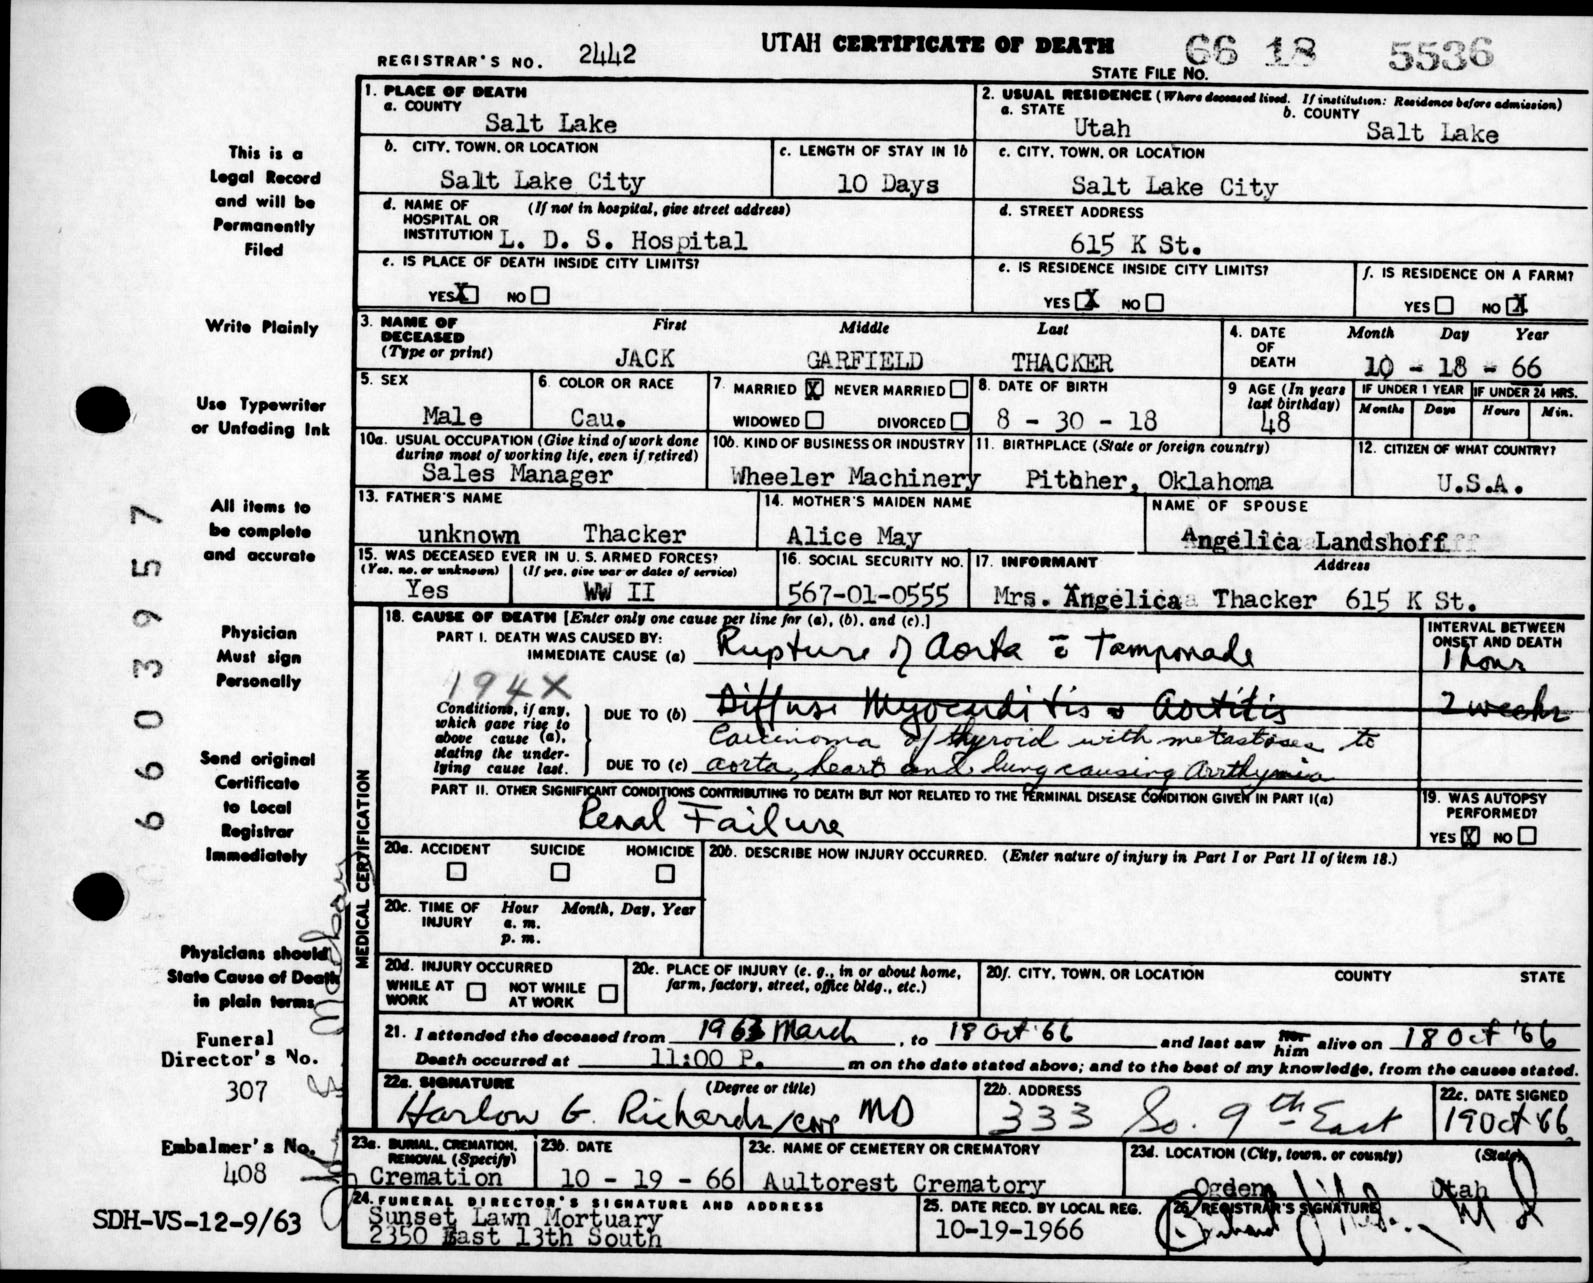 UTAH CERTIFICATE OF DEATH 66 18 5536
REGISTRAR'S NO. 2442
STATE FILE NO.
1. PLACE OF DEATH
a. COUNTY
Salt Lake
2. USUAL RESIDENCE (Where deceased lived. If institution: Residence before admission)
a. STATE
Utah
b. COUNTY
Salt Lake
b. CITY, TOWN, OR LOCATION
Salt Lake City
c. LENGTH OF STAY IN 1b
10 Days
c. CITY, TOWN, OR LOCATION
Salt Lake City
d. NAME OF HOSPITAL OR INSTITUTION (If not in hospital, give street address)
L. D. S. Hospital
d. STREET ADDRESS
615 K St.
e. IS PLACE OF DEATH INSIDE CITY LIMITS?
YES X NO
e. IS RESIDENCE INSIDE CITY LIMITS?
YES X NO
f. IS RESIDENCE ON A FARM?
YES NO X
3. NAME OF DECEASED (Type or print)
First Middle Last
JACK GARFIELD THACKER
4. DATE OF DEATH
Month Day Year
10 - 18 - 66
5. SEX
Male
6. COLOR OR RACE
Cau.
7. MARRIED X NEVER MARRIED
WIDOWED DIVORCED
8. DATE OF BIRTH
8 - 30 - 18
9 AGE (In years last birthday)
48
IF UNDER 1 YEAR
Months Days
IF UNDER 24 HRS.
Hours Min.
10a. USUAL OCCUPATION (Give kind of work done during most of working life, even if retired)
Sales Manager
10b. KIND OF BUSINESS OR INDUSTRY
Wheeler Machinery
11. BIRTHPLACE (State or foreign country)
Pitcher, Oklahoma
12. CITIZEN OF WHAT COUNTRY?
U.S.A.
13. FATHER'S NAME
unknown Thacker
14. MOTHER'S MAIDEN NAME
Alice May
NAME OF SPOUSE
Angelica Landshoff
15. WAS DECEASED EVER IN U. S. ARMED FORCES?
(Yes, no, or unknown) (If yes, give war or dates of service)
Yes WW II
16. SOCIAL SECURITY NO.
567-01-0555
17. INFORMANT Address
Mrs. Angelica Thacker 615 K St.
18. CAUSE OF DEATH [Enter only one cause per line for (a), (b), and (c).]
PART I. DEATH WAS CAUSED BY:
IMMEDIATE CAUSE (a) Rupture of Aorta c̄ Tamponade
INTERVAL BETWEEN ONSET AND DEATH
1 hour
194X
Conditions, if any, which gave rise to above cause (a), stating the underlying cause last.
DUE TO (b) Diffuse Myocarditis & Aortitis
2 weeks
Carcinoma of thyroid with metastases to
DUE TO (c) aorta, heart and lung causing Arrthymia
PART II. OTHER SIGNIFICANT CONDITIONS CONTRIBUTING TO DEATH BUT NOT RELATED TO THE TERMINAL DISEASE CONDITION GIVEN IN PART I(a)
Renal Failure
19. WAS AUTOPSY PERFORMED?
YES X NO
20a. ACCIDENT SUICIDE HOMICIDE
20b. DESCRIBE HOW INJURY OCCURRED. (Enter nature of injury in Part I or Part II of item 18.)
20c. TIME OF INJURY Hour Month, Day, Year
a. m.
p. m.
20d. INJURY OCCURRED
WHILE AT WORK NOT WHILE AT WORK
20e. PLACE OF INJURY (e. g., in or about home, farm, factory, street, office bldg., etc.)
20f. CITY, TOWN, OR LOCATION COUNTY STATE
21. I attended the deceased from 1963 March, to 18 Oct '66 and last saw her him alive on 18 Oct '66
Death occurred at 11:00 P. m on the date stated above; and to the best of my knowledge, from the causes stated.
22a. SIGNATURE (Degree or title)
Harlow G. Richards MD
22b. ADDRESS
333 So. 9th East
22c. DATE SIGNED
19 Oct 66
23a. BURIAL, CREMATION, REMOVAL (Specify)
Cremation
23b. DATE
10 - 19 - 66
23c. NAME OF CEMETERY OR CREMATORY
Aultorest Crematory
23d. LOCATION (City, town, or county) (State)
Ogden Utah
24. FUNERAL DIRECTOR'S SIGNATURE AND ADDRESS
Sunset Lawn Mortuary
2350 East 13th South
25. DATE RECD. BY LOCAL REG.
10-19-1966
26. REGISTRAR'S SIGNATURE
MEDICAL CERTIFICATION
This is a
Legal Record
and will be
Permanently
Filed
Write Plainly
Use Typewriter
or Unfading Ink
All items to
be complete
and accurate
Physician
Must sign
Personally
Send original
Certificate
to Local
Registrar
Immediately
Physicians should
State Cause of Death
in plain terms
Funeral
Director's No.
307
Embalmer's No.
408
SDH-VS-12-9/63
66 03957